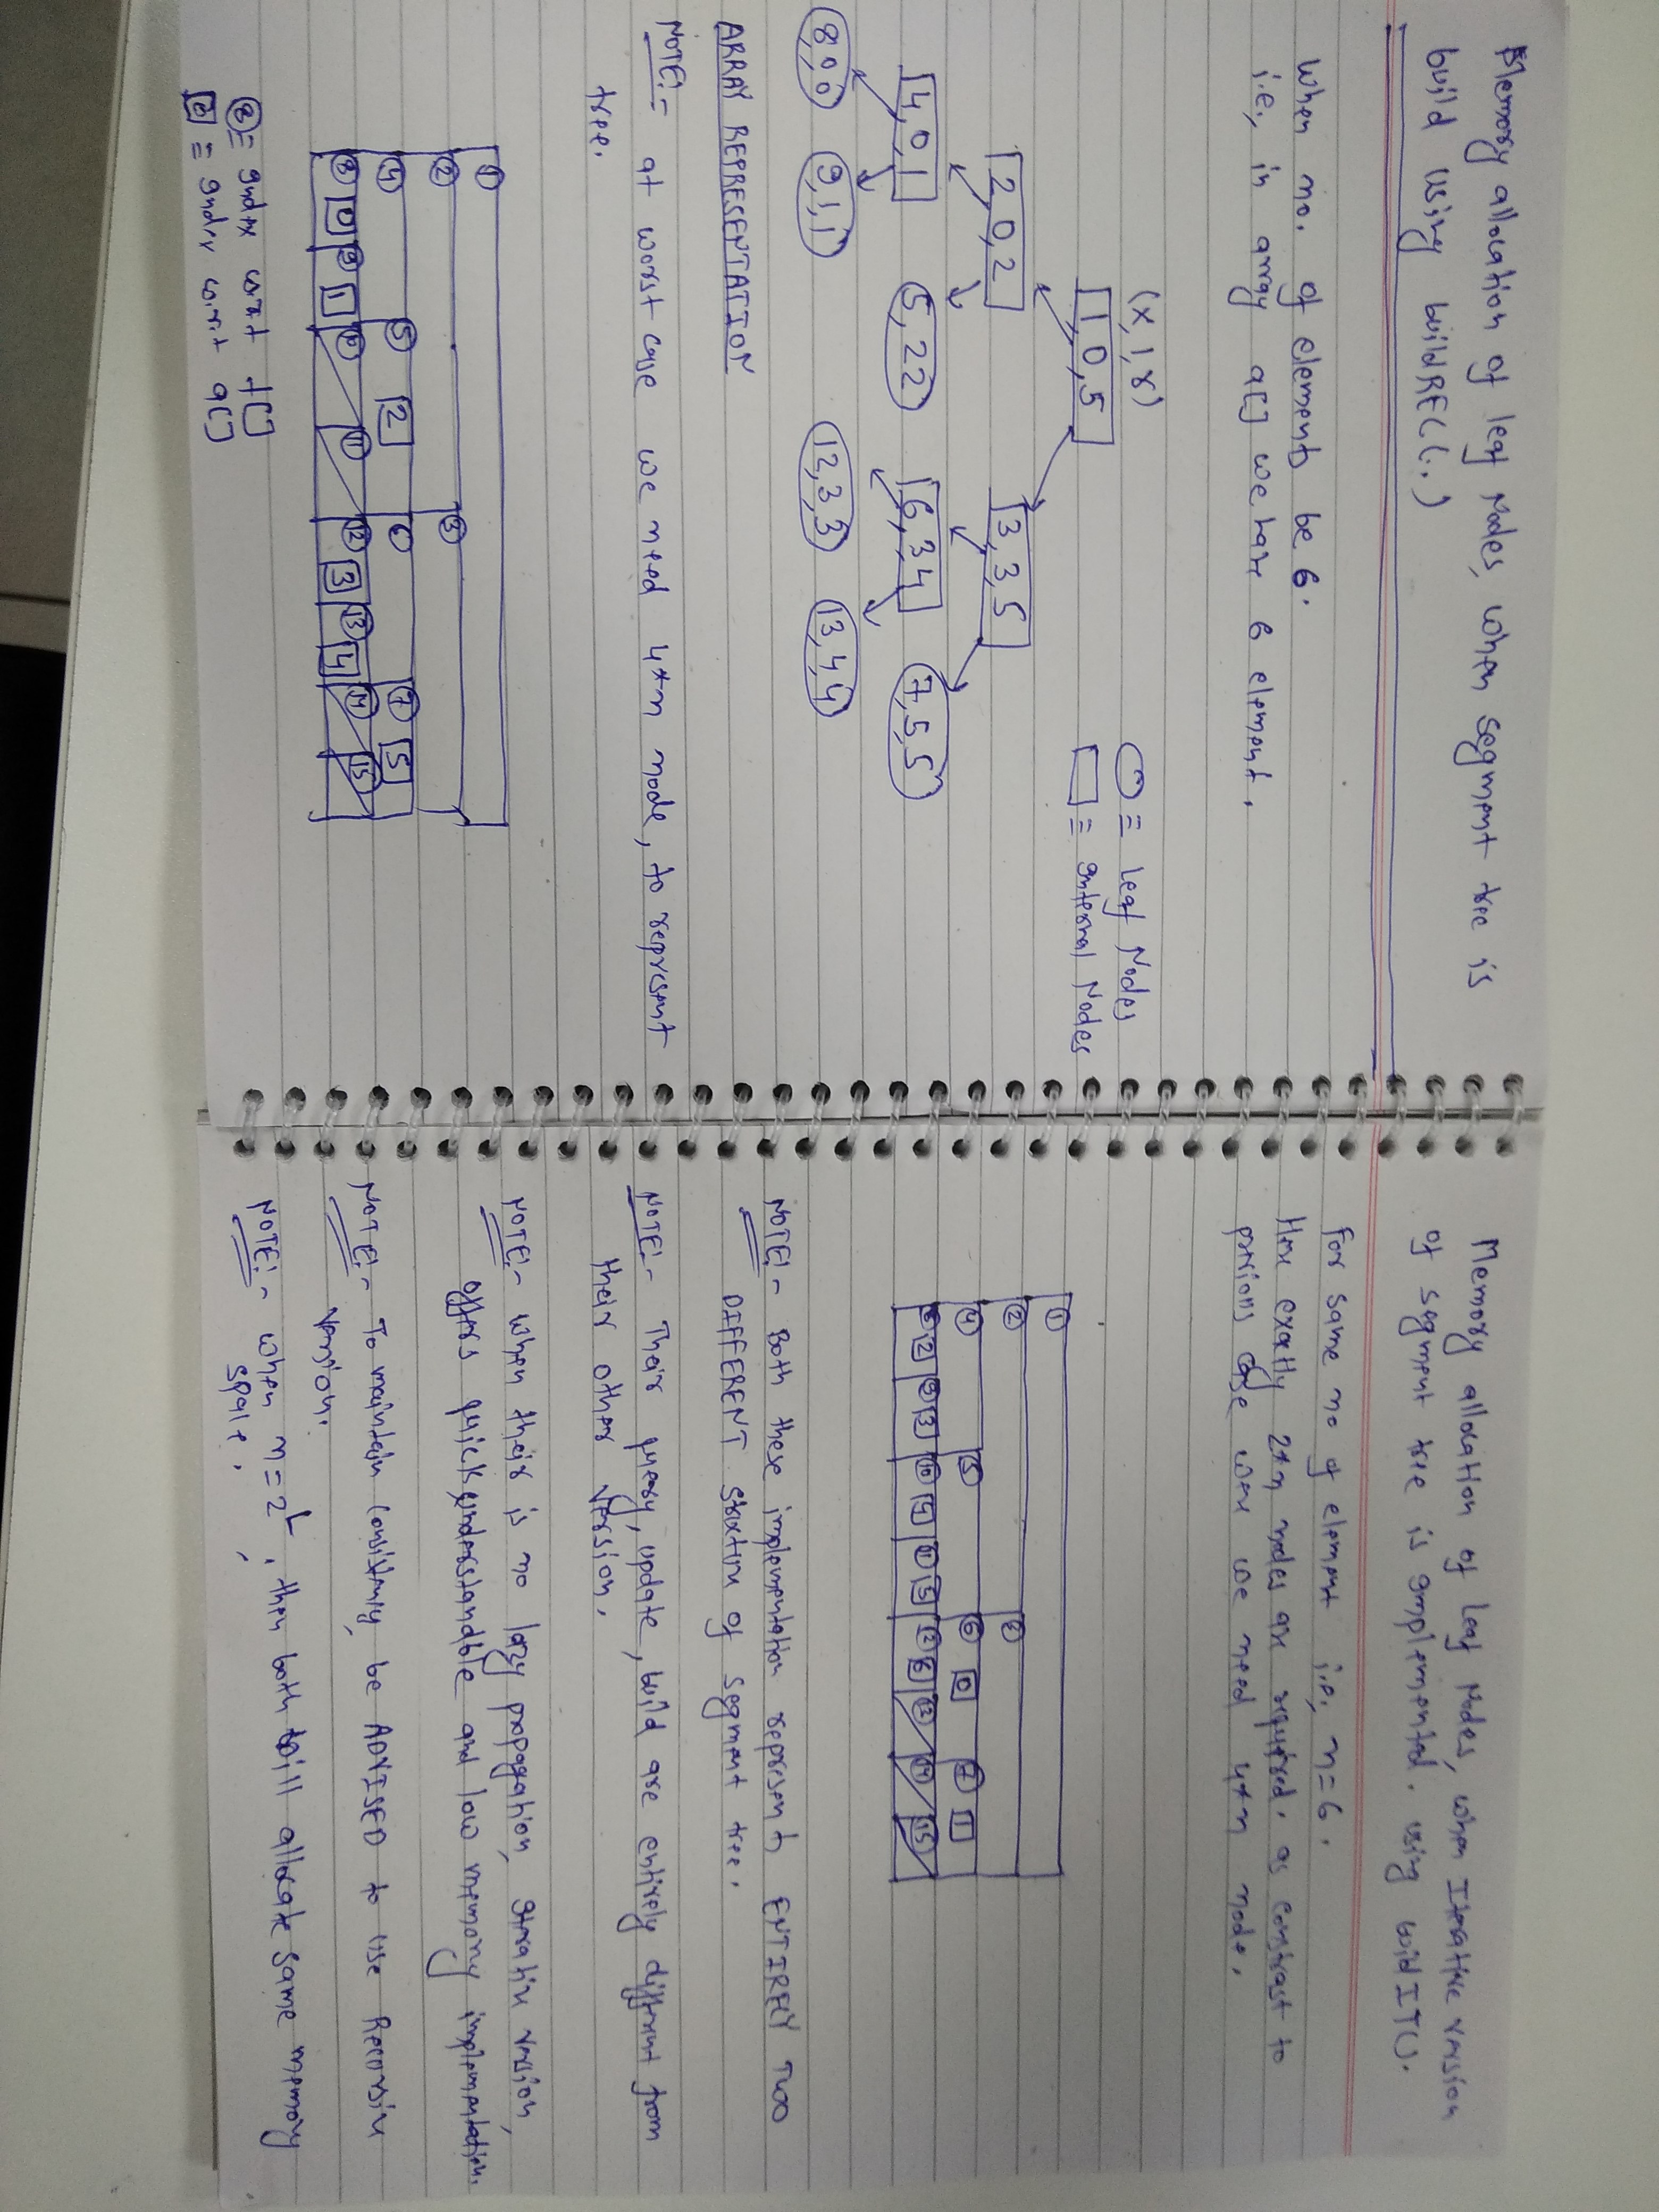 Memory allocation of leaf Nodes, when segment tree is
build using buildREC(..)
when no. of elements be 6.
i.e., in array a[] we have 6 element.
(x, l, r)
1,0,5
○ ≡ leaf Nodes
□ ≡ Internal Nodes
2,0,2 3,3,5
4,0,1 5,22 6,34 7,5,5
8,0,0 9,1,1 12,3,3 13,4,4
ARRAY REPRESENTATION
NOTE:- at worst case we need 4*n node, to represent
tree.
1
2 3
4 5 2 6 7 5
8 0 9 1 10 11 12 3 13 4 14 15
≡ Index w.r.t t[]
≡ Index w.r.t a[]
Memory allocation of leaf Nodes, when Iterative version
of segment tree is Implemented. using buildIT().
for same no of element i.e, n=6.
Here exactly 2*n nodes are required. as constrast to
prrious case were we need 4*n node.
1
2
4 5 6 0 7 1
8 2 9 3 10 4 11 5 12 13 14 15
NOTE:- Both these implementation represent ENTIRELY TWO
DIFFERENT strxtur of segment tree.
NOTE:- Their query, update, build are entirely diffrnt from
their other version.
NOTE:- when their is no lazy propagation, Itrativ version,
offers quick understandble and low memory implementation.
NOTE:- To maintain consitrny, be ADVISED to use Recursiv
version.
NOTE:- when n=2^L, then both will allocate same memory